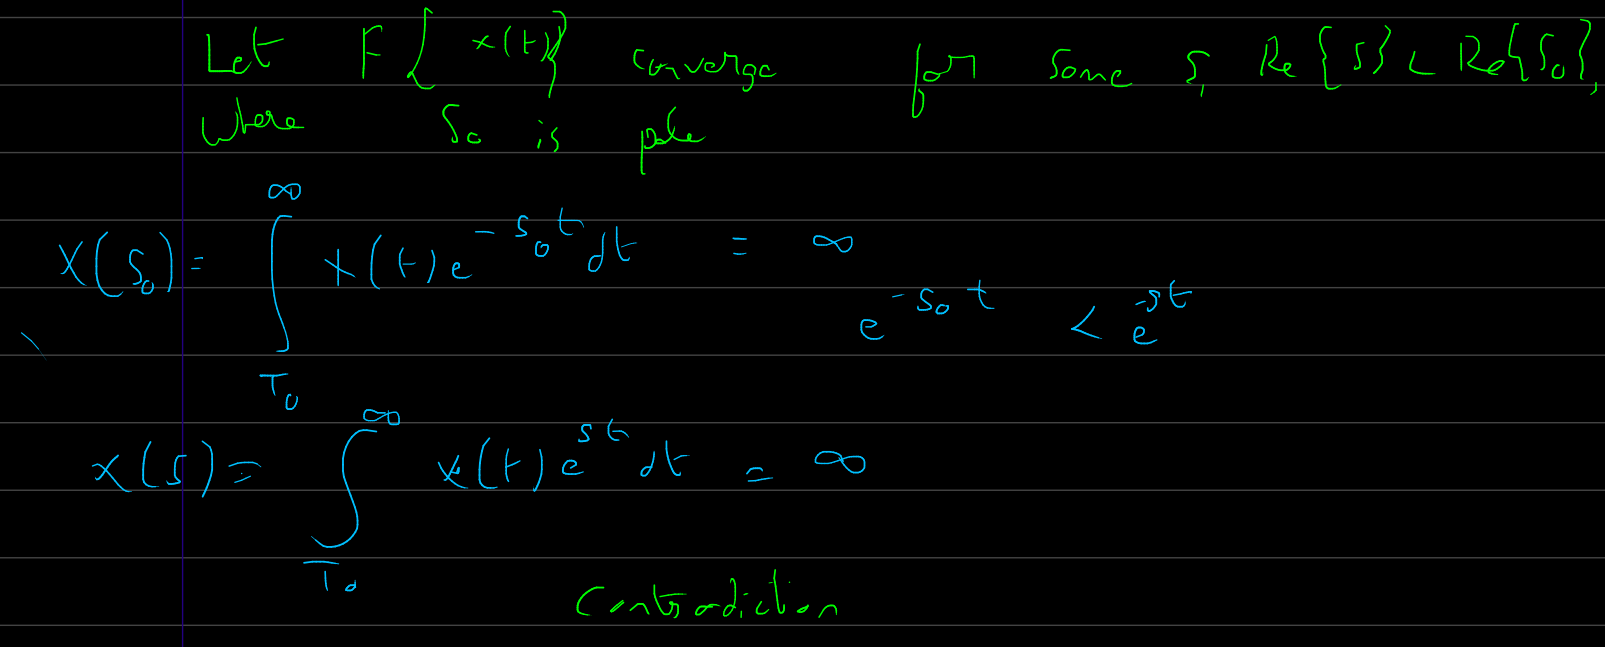 Let F{x(t)} converge for some s, Re{s} < Re{s₀},
where s₀ is pole
X(s₀) = ∫_{T₀}^{∞} x(t) e^{-s₀t} dt = ∞
e^{-s₀t} < e^{-st}
x(s) = ∫_{T₀}^{∞} x(t) e^{st} dt = ∞
Contradiction